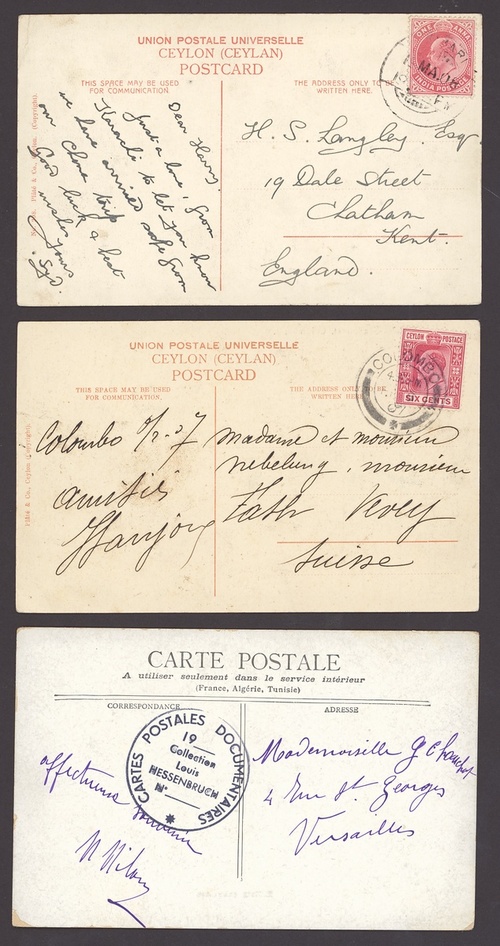 UNION POSTALE UNIVERSELLE
CEYLON (CEYLAN)
POSTCARD
THIS SPACE MAY BE USED
FOR COMMUNICATION.
THE ADDRESS ONLY TO BE
WRITTEN HERE.
ONE ANNA
INDIA POSTAGE
Dear Harry.
Just a line, from
Karachi to let you know
we have arrived safe from
our trip
Good luck & best
wishes yours
Syd.
H. S. Langley. Esqr
19 Dale Street
Chatham
Kent.
England.
UNION POSTALE UNIVERSELLE
CEYLON (CEYLAN)
POSTCARD
THIS SPACE MAY BE USED
FOR COMMUNICATION.
THE ADDRESS ONLY TO BE
WRITTEN HERE.
CEYLON POSTAGE
SIX CENTS
COLOMBO
Plâté & Co., Ceylon. (Copyright).
Colombo
amitiés
madame et monsieur
nebelung, monsieur
Fath Vevey
Suisse
CARTE POSTALE
A utiliser seulement dans le service intérieur
(France, Algérie, Tunisie)
CORRESPONDANCE
ADRESSE
CARTES POSTALES DOCUMENTAIRES
19
Collection
Louis
HESSENBRUCH
N°
affectueux souvenir
Mademoiselle G
4 Rue St. Georges
Versailles